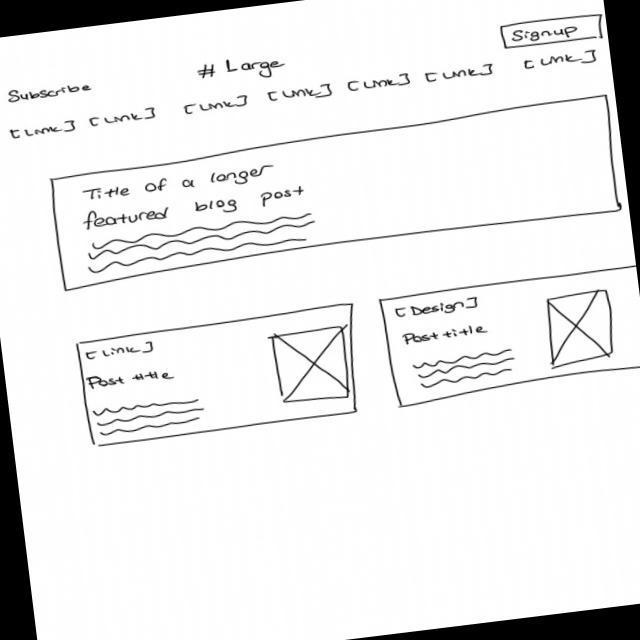 Subscribe
# Large
Signup
[Link] [Link] [Link] [Link] [Link] [Link] [Link]
Title of a longer
featured blog post
[Link]
Post title
[Design]
Post title